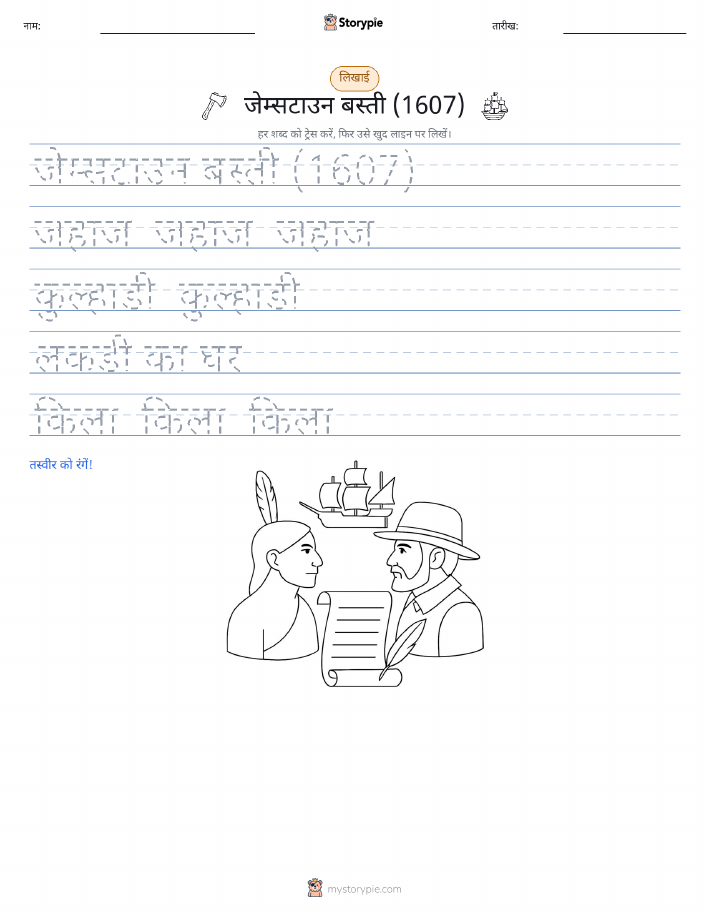 नाम:
Storypie
तारीख:
लिखाई
जेम्सटाउन बस्ती (1607)
हर शब्द को ट्रेस करें, फिर उसे खुद लाइन पर लिखें।
जेम्सटाउन बस्ती (1607)
जहाज जहाज जहाज
कुल्हाडी कुल्हाडी
लकडी का घर
किला किला किला
तस्वीर को रंगें!
mystorypie.com